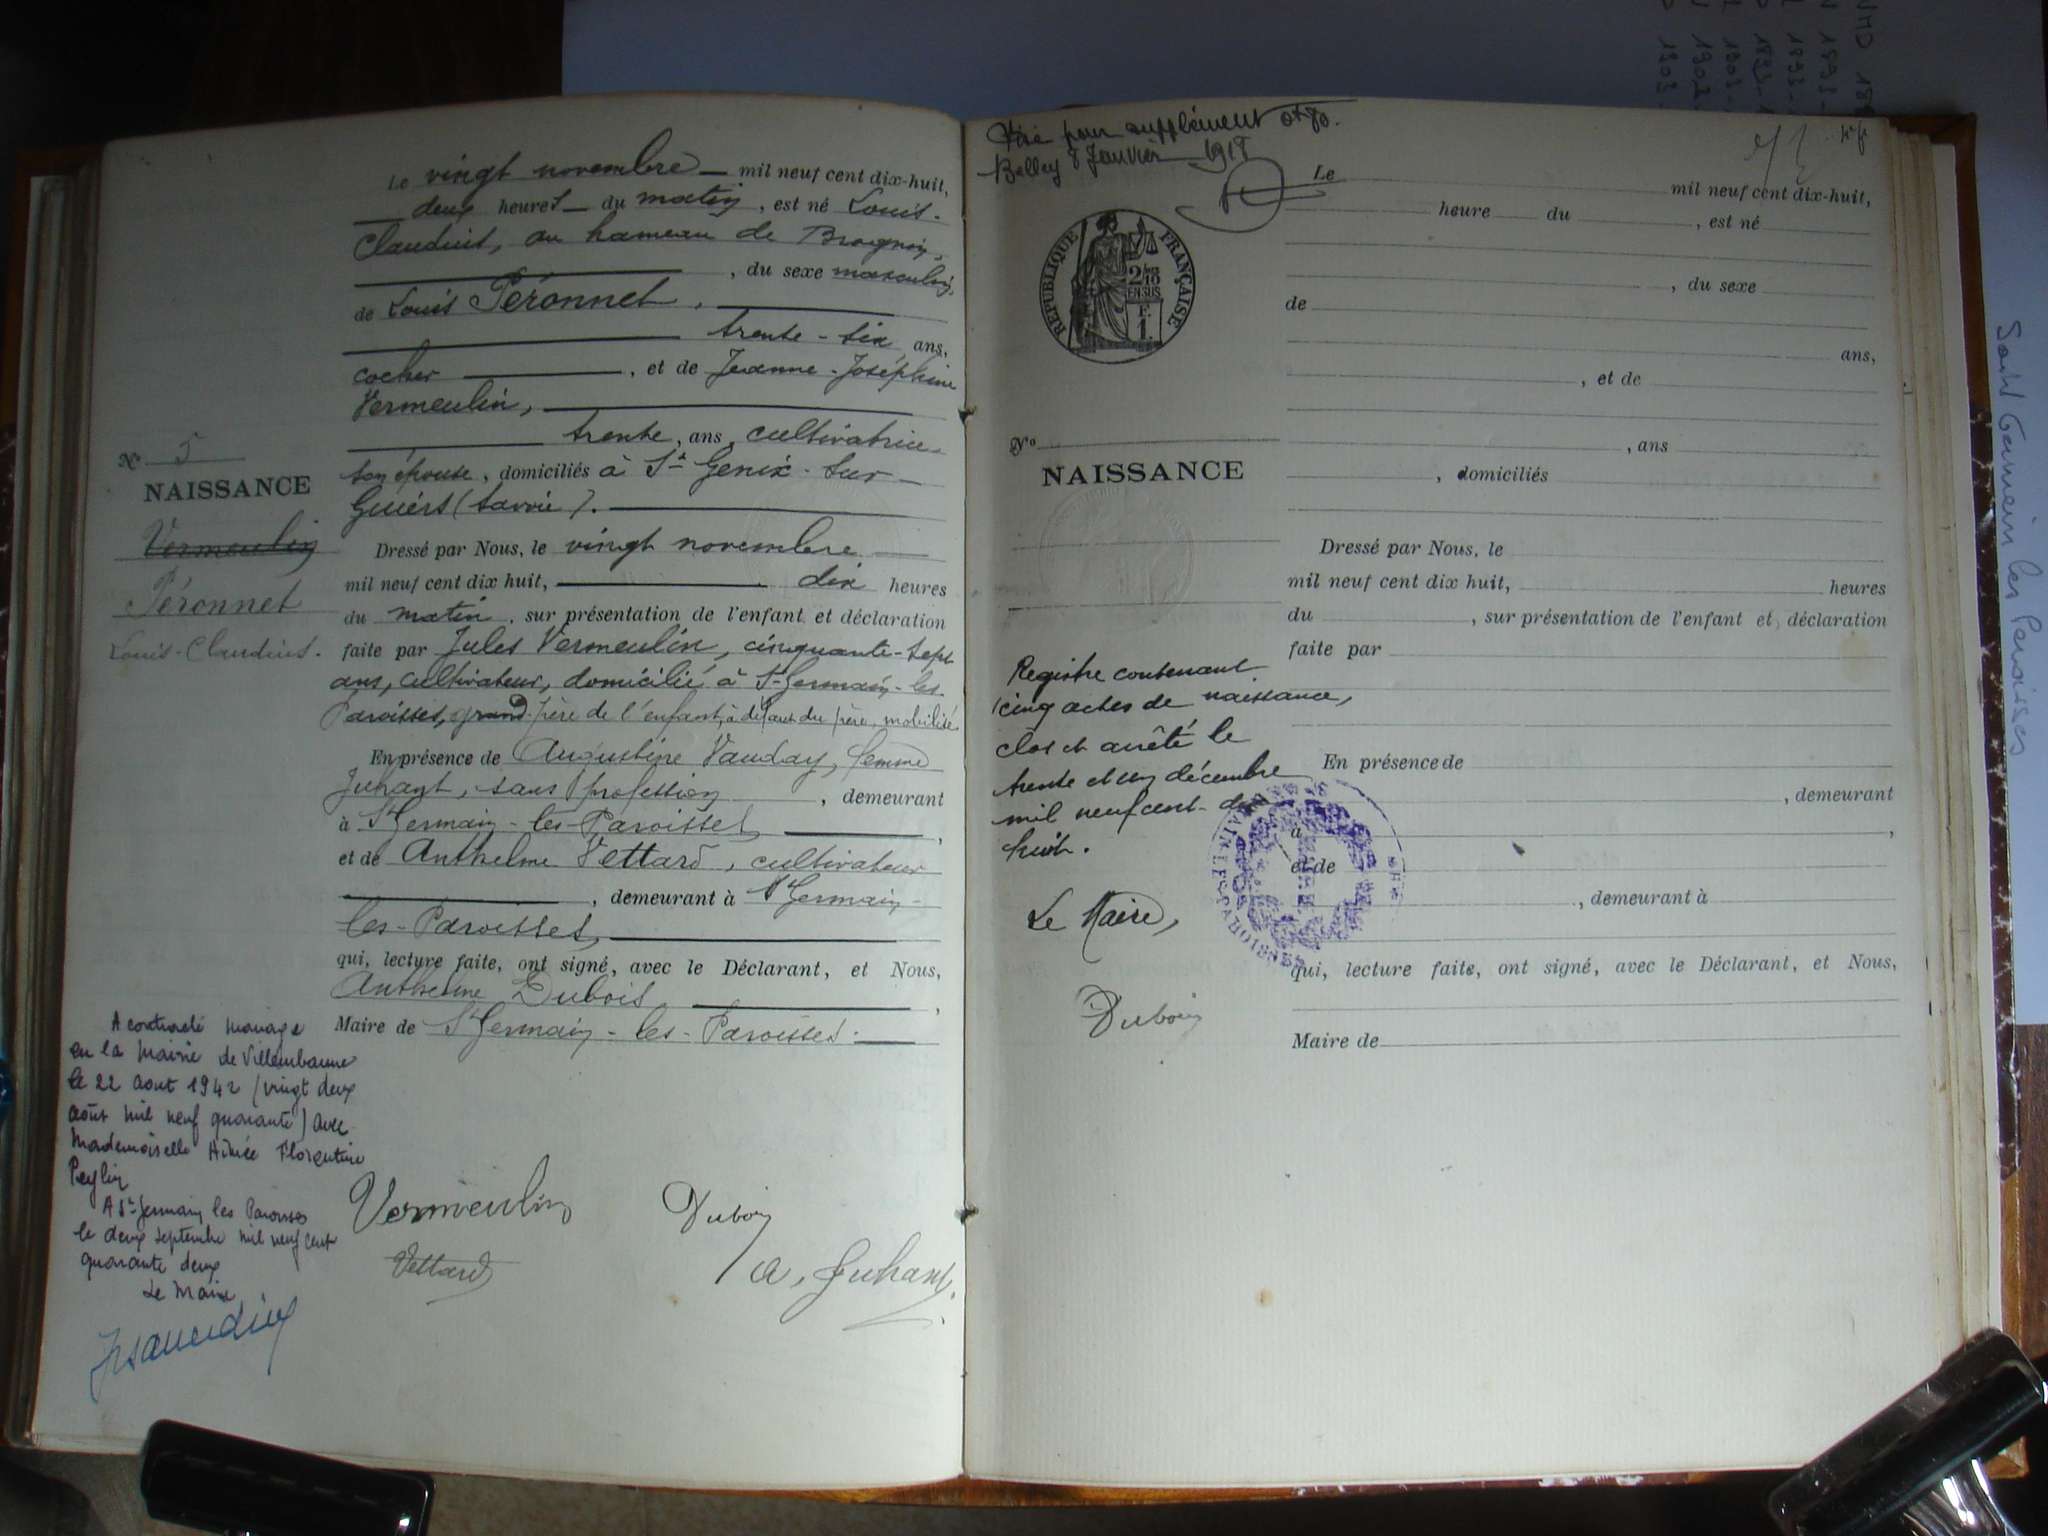 Le vingt novembre mil neuf cent dix-huit,
deux heures du matin, est né Louis-
Claudius, au hameau de Brognin,
, du sexe masculin,
de Louis Péronnet,
trente-six ans,
cocher, et de Jeanne-Joséphine
Vermeulin,
trente, ans, cultivatrice
son épouse, domiciliés à St Genix-sur-
Guiers (Savoie).
N° 5
NAISSANCE
Vermeulin
Péronnet
Louis-Claudius.
Dressé par Nous, le vingt novembre
mil neuf cent dix huit, dix heures
du matin, sur présentation de l'enfant et déclaration
faite par Jules Vermeulin, cinquante-sept
ans, cultivateur, domicilié à St-Germain-les-
Paroisses, grand-père de l'enfant, à défaut du père, mobilisé
En présence de Augustine Vauday, femme
Juhant, sans profession, demeurant
à St Germain-les-Paroisses,
et de Anthelme Vettard, cultivateur
, demeurant à St Germain-
les-Paroisses,
qui, lecture faite, ont signé, avec le Déclarant, et Nous,
Anthelme Dubois,
Maire de St Germain-les-Paroisses.
A contracté mariage
en la Mairie de Villeurbanne
le 22 Aout 1942 (vingt deux
août mil neuf quarante) avec
Mademoiselle Aimée Florentine
Peylin
A St Germain les Paroisses
le deux septembre mil neuf cent
quarante deux
Le Maire
Vermeulin
Dubois
Vettard
A. Juhant.
Visé pour supplément
Belley 8 Janvier 1918
REPUBLIQUE FRANÇAISE
2/10 EN SUS
F. 1.
Le mil neuf cent dix-huit,
heure du , est né
, du sexe
de
ans,
, et de
N°
NAISSANCE
, ans
, domiciliés
Dressé par Nous, le
mil neuf cent dix huit, heures
du , sur présentation de l'enfant et déclaration
faite par
Registre contenant
cinq actes de naissance,
clos et arrêté le
trente et un décembre
mil neuf cent-dix
huit.
Le Maire,
Dubois
En présence de
, demeurant
à ,
et de
, demeurant à
qui, lecture faite, ont signé, avec le Déclarant, et Nous,
Maire de
Saint Germain les Paroisses